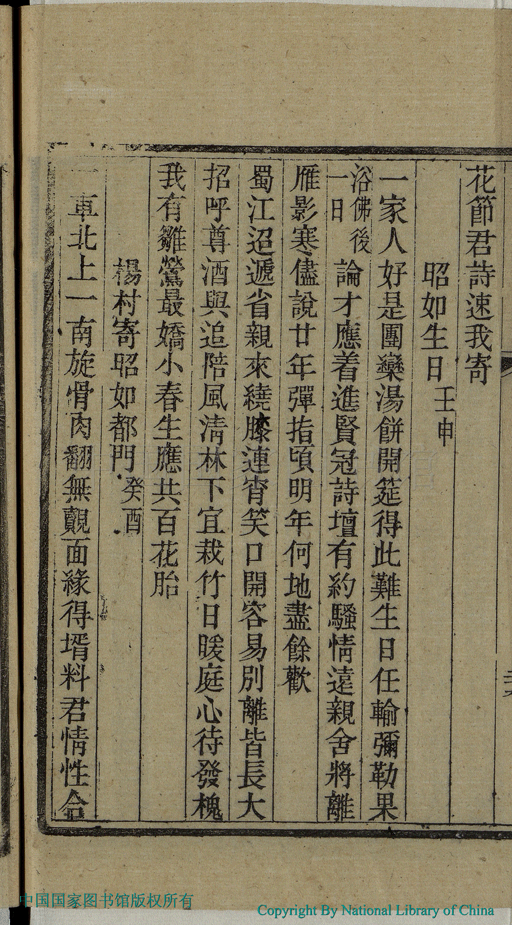 花節君詩速我寄
昭如生日壬申
一家人好是團欒湯餅開筵得此難生日任輸彌勒果
浴佛後一日論才應着進賢冠詩壇有約騷情遠親舍將離
雁影寒儘說廿年彈指頃明年何地盡餘歡
蜀江迢遞省親來繞膝連宵笑口開容易別離皆長大
招呼尊酒與追陪風清林下宜栽竹日暖庭心待發槐
我有雛鶯最嬌小春生應共百花胎
楊村寄昭如都門癸酉
一車北上一南旋骨肉翻無覿面緣得壻料君情性合
中国国家图书馆版权所有
Copyright By National Library of China